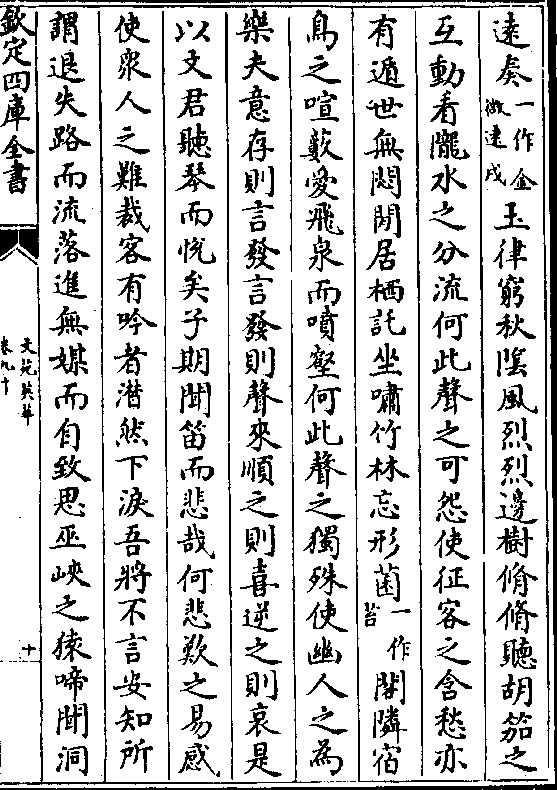 遠奏一作金徽遠戍玉律窮秋陰風烈烈邊樹脩脩聽胡笳之
互動看隴水之分流何此聲之可怨使征客之含愁亦
有遁世無悶閒居栖託坐嘯竹林忘形菌一作苔閣隣宿
鳥之喧藪愛飛泉而噴壑何此聲之獨殊使幽人之為
樂夫意存則言發言發則聲來順之則喜逆之則哀是
以文君聽琴而悅矣子期聞笛而悲哉何悲歎之易感
使衆人之難裁客有吟者潸然下淚吾將不言安知所
謂退失路而流落進無媒而自致思巫峽之猿啼聞洞
欽定四庫全書
文苑英華
卷九十
十